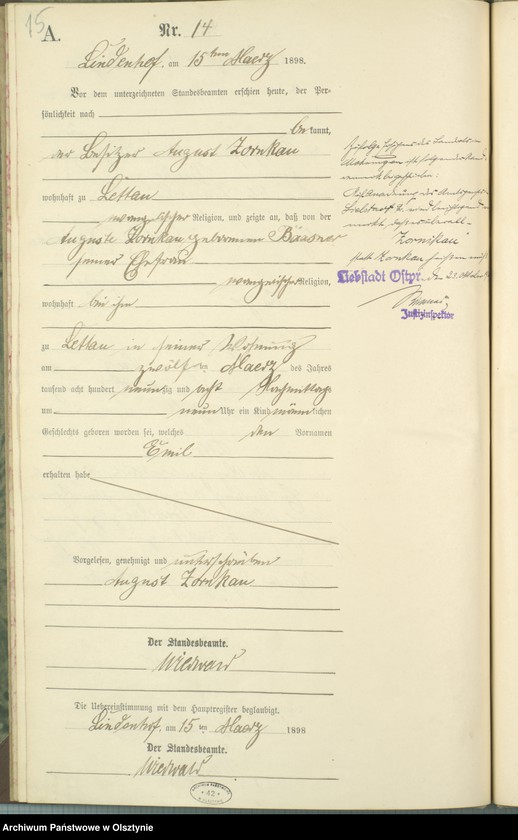 15
A.
Nr. 14
Lindenhof, am 15ten Maerz 1898.
Vor dem unterzeichneten Standesbeamten erschien heute, der Per-
sönlichkeit nach
bekannt,
der Besitzer August Zornkau
wohnhaft zu Lettau
evangelischer Religion, und zeigte an, daß von der
Auguste Zornkau geborenen
seiner Ehefrau
evangelischer Religion,
wohnhaft bei ihm
zu Lettau in seiner Wohnung
am zwölften Maerz des Jahres
tausend acht hundert neunzig und acht Nachmittags
um neun Uhr ein Kind männlichen
Geschlechts geboren worden sei, welches den Vornamen
Emil
erhalten habe
Vorgelesen, genehmigt und unterschrieben
August Zornkau
Der Standesbeamte.
Wiedwald
Die Uebereinstimmung mit dem Hauptregister beglaubigt.
Lindenhof, am 15ten Maerz 1898
Der Standesbeamte.
Wiedwald
Zufolge des Landrats
Mohrungen ist folgender Rand-
vermerk
Zornikau
statt Zornkau heissen muss
Liebstadt Ostpr., den
Justizinspektor
Archiwum Państwowe w Olsztynie